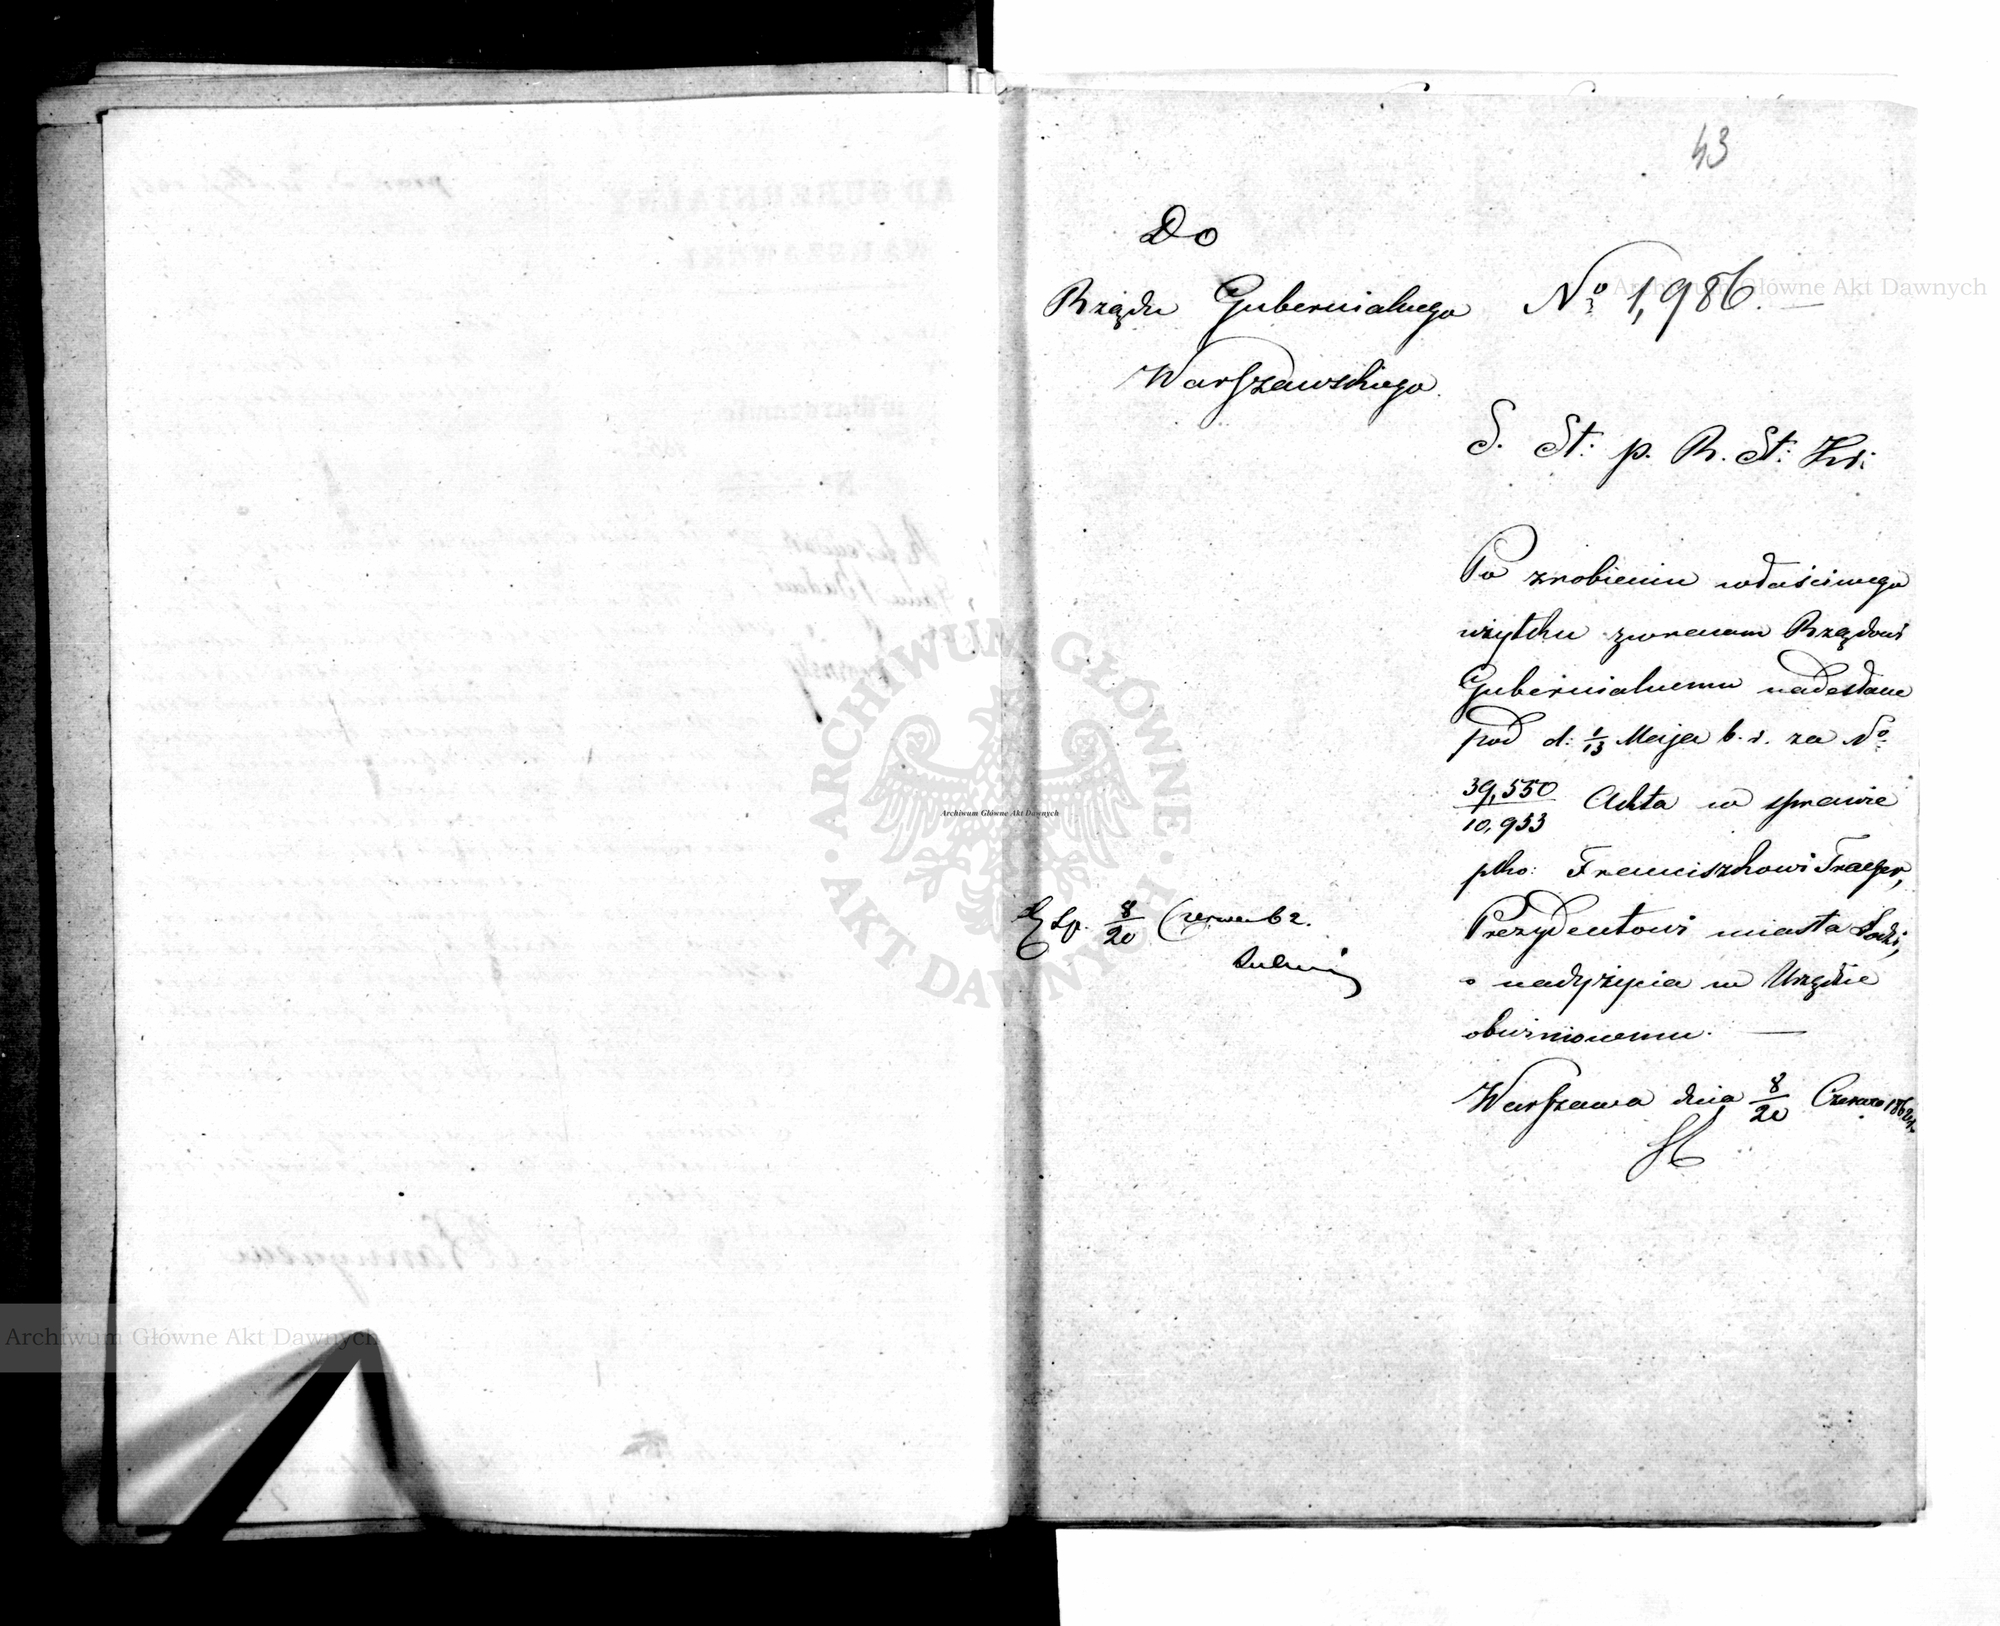 43
Do
Rządu Gubernialnego
Warszawskiego.
No 1,986.
S. St: p. R. St: Kr:
Po zrobieniu właściwego
użytku zwracam Rządowi
Gubernialnemu nadesłane
pod d: 1/13 Maja b. r. za No
39,550/10,953 Akta w sprawie
pko: Franciszkowi Traeger,
Prezydentowi miasta Łodzi,
o nadużycia w Urzędzie
obwinionemu. —
Warszawa dnia 8/20 Czerwca 1862 r.
Exp. 8/20 Czerwca 62.
Archiwum Główne Akt Dawnych
ARCHIWUM GŁÓWNE
AKT DAWNYCH
Archiwum Główne Akt Dawnych
Archiwum Główne Akt Dawnych